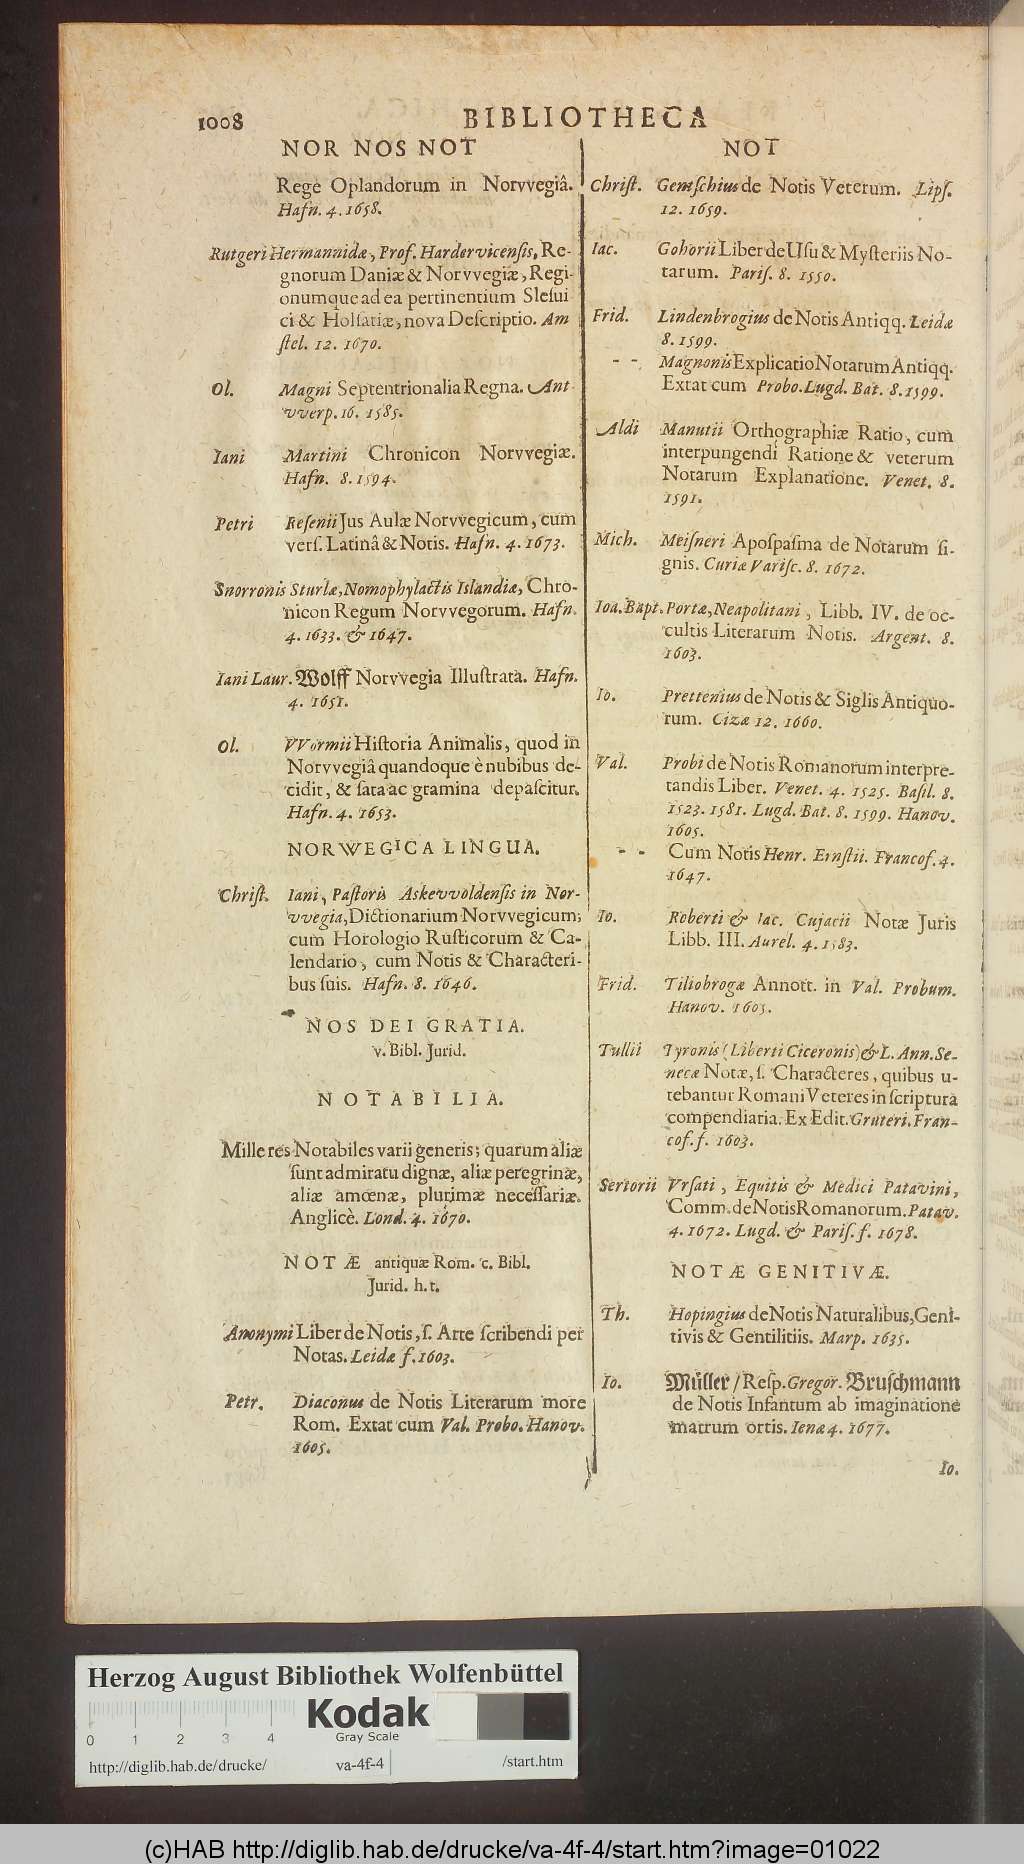 1008
BIBLIOTHECA
NOR NOS NOT
Rege Oplandorum in Norvvegiâ.
Hafn. 4. 1658.
Rutgeri Hermannidæ, Prof. Hardervicensis, Re-
gnorum Daniæ & Norvvegiæ, Regi-
onumque ad ea pertinentium Slesui
ci & Holsatiæ, nova Descriptio. Am
stel. 12. 1670.
Ol. Magni Septentrionalia Regna. Ant-
vverp. 16. 1585.
Iani Martini Chronicon Norvvegiæ.
Hafn. 8. 1594.
Petri Resenii Jus Aulæ Norvvegicum, cum
vers. Latinâ & Notis. Hafn. 4. 1673.
Snorronis Sturlæ, Nomophylactis Islandiæ, Chro-
nicon Regum Norvvegorum. Hafn.
4. 1633. & 1647.
Iani Laur. Wolff Norvvegia Illustrata. Hafn.
4. 1651.
Ol. VVormii Historia Animalis, quod in
Norvvegiâ quandoque è nubibus de-
cidit, & sata ac gramina depascitur.
Hafn. 4. 1653.
NORWEGICA LINGUA.
Christ. Iani, Pastoris Askevvoldensis in Nor-
vvegia, Dictionarium Norvvegicum;
cum Horologio Rusticorum & Ca-
lendario, cum Notis & Characteri-
bus suis. Hafn. 8. 1646.
NOS DEI GRATIA.
v. Bibl. Jurid.
NOTABILIA.
Mille res Notabiles varii generis; quarum aliæ
sunt admiratu dignæ, aliæ peregrinæ,
aliæ amœnæ, plurimæ necessariæ.
Anglicè. Lond. 4. 1670.
NOTÆ antiquæ Rom. c. Bibl.
Jurid. h. t.
Anonymi Liber de Notis, s. Arte scribendi per
Notas. Leidæ f. 1603.
Petr. Diaconus de Notis Literarum more
Rom. Extat cum Val. Probo. Hanov.
1605.
NOT
Christ. Gemschius de Notis Veterum. Lips.
12. 1659.
Iac. Gohorii Liber de Usu & Mysteriis No-
tarum. Paris. 8. 1550.
Frid. Lindenbrogius de Notis Antiqq. Leidæ
8. 1599.
- - Magnonis Explicatio Notarum Antiqq.
Extat cum Probo. Lugd. Bat. 8. 1599.
Aldi Manutii Orthographiæ Ratio, cum
interpungendi Ratione & veterum
Notarum Explanatione. Venet. 8.
1591.
Mich. Meisneri Apospasma de Notarum si-
gnis. Curiæ Varisc. 8. 1672.
Ioa. Bapt. Portæ, Neapolitani, Libb. IV. de oc-
cultis Literarum Notis. Argent. 8.
1603.
Io. Prettenius de Notis & Siglis Antiquo-
rum. Cizæ 12. 1660.
Val. Probi de Notis Romanorum interpre-
tandis Liber. Venet. 4. 1525. Basil. 8.
1523. 1581. Lugd. Bat. 8. 1599. Hanov.
1605.
- - Cum Notis Henr. Ernstii. Francof. 4.
1647.
Io. Roberti & Iac. Cujacii Notæ Juris
Libb. III. Aurel. 4. 1583.
Frid. Tiliobrogæ Annott. in Val. Probum.
Hanov. 1605.
Tullii Tyronis (Liberti Ciceronis) & L. Ann. Se-
necæ Notæ, s. Characteres, quibus u-
tebantur Romani Veteres in scriptura
compendiaria. Ex Edit. Gruteri. Fran-
cof. f. 1603.
Sertorii Ursati, Equitis & Medici Patavini,
Comm. de Notis Romanorum. Patav.
4. 1672. Lugd. & Paris. f. 1678.
NOTÆ GENITIVÆ.
Th. Hopingius de Notis Naturalibus, Geni-
tivis & Gentilitiis. Marp. 1635.
Io. Müller / Resp. Gregor. Bruschmann
de Notis Infantum ab imaginatione
matrum ortis. Ienæ 4. 1677.
Io.
Herzog August Bibliothek Wolfenbüttel
Kodak
Gray Scale
0 1 2 3 4
http://diglib.hab.de/drucke/ va-4f-4 /start.htm
(c)HAB http://diglib.hab.de/drucke/va-4f-4/start.htm?image=01022